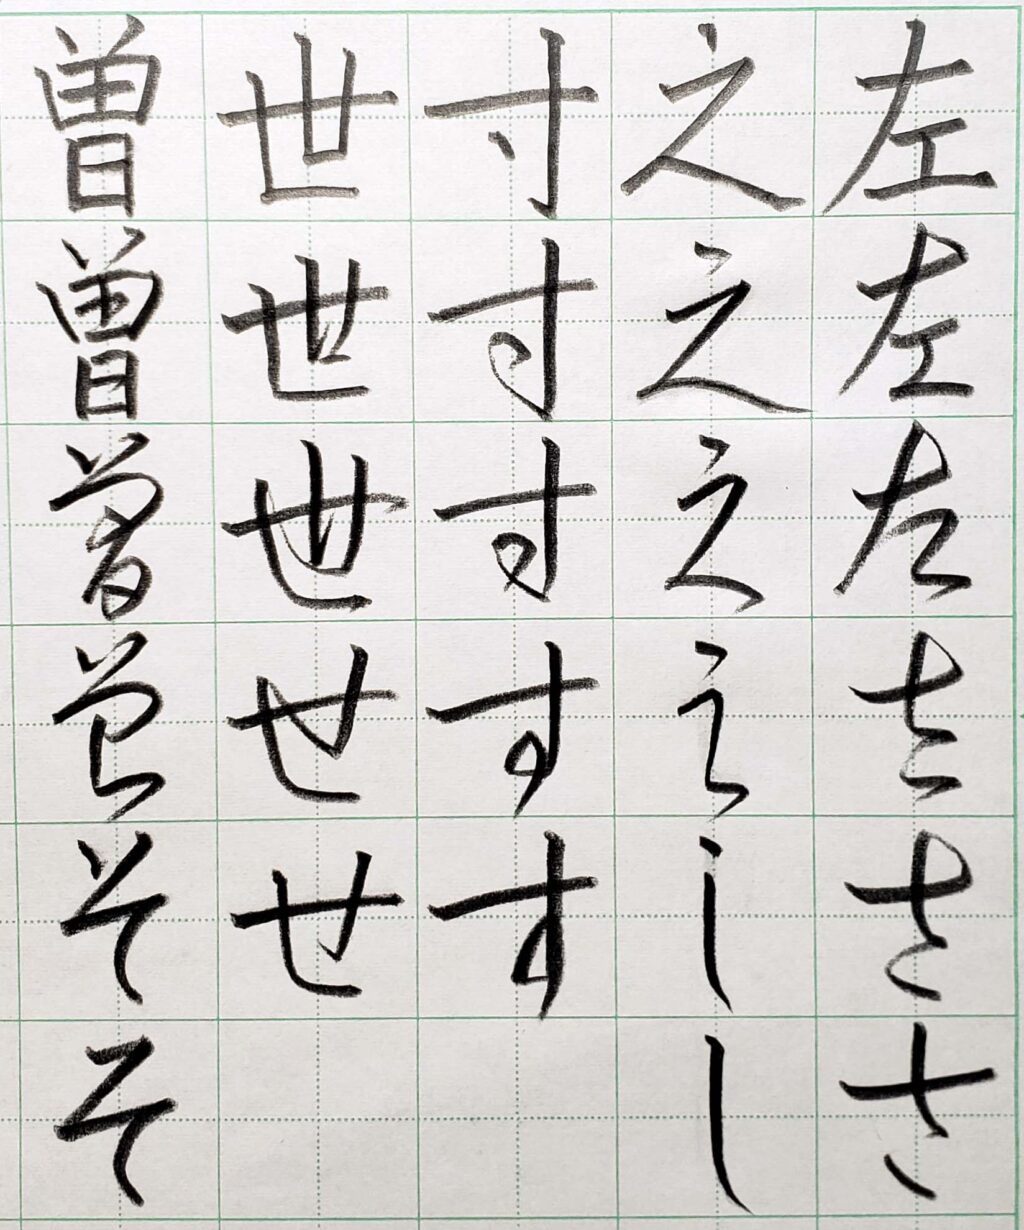 左左左ささ さ
之之之之しし
寸寸寸すす
世世世せせ
曽曽曽曽そそ